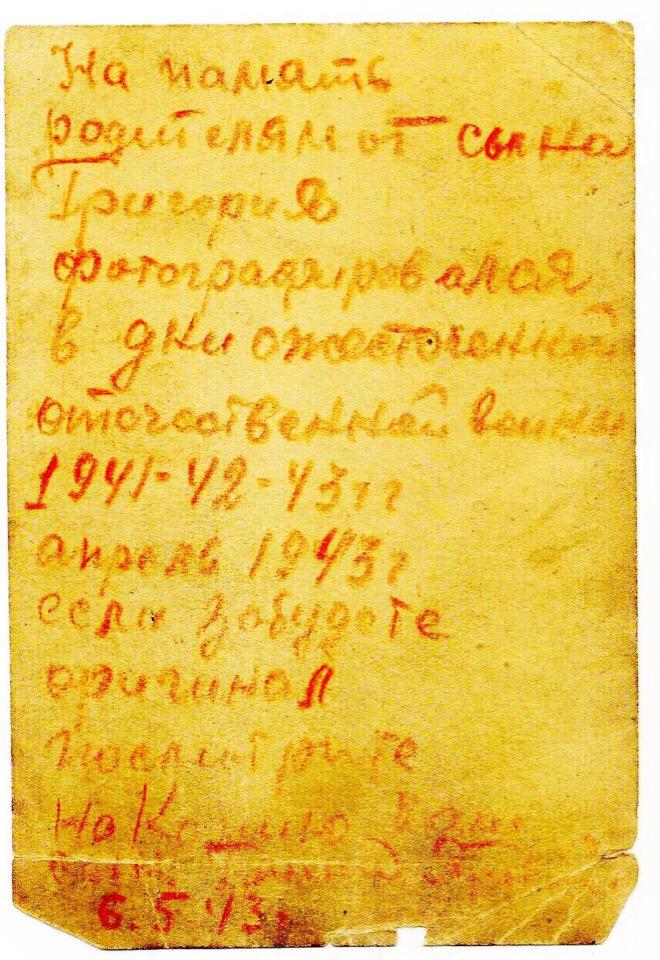 На память
родителям от сына
Григория
фотографировался
в дни ожесточенной
отечественной войны
1941-42-43 гг
апрель 1943 г
если забудете
оригинал
посмотрите
На
6.5 43 г